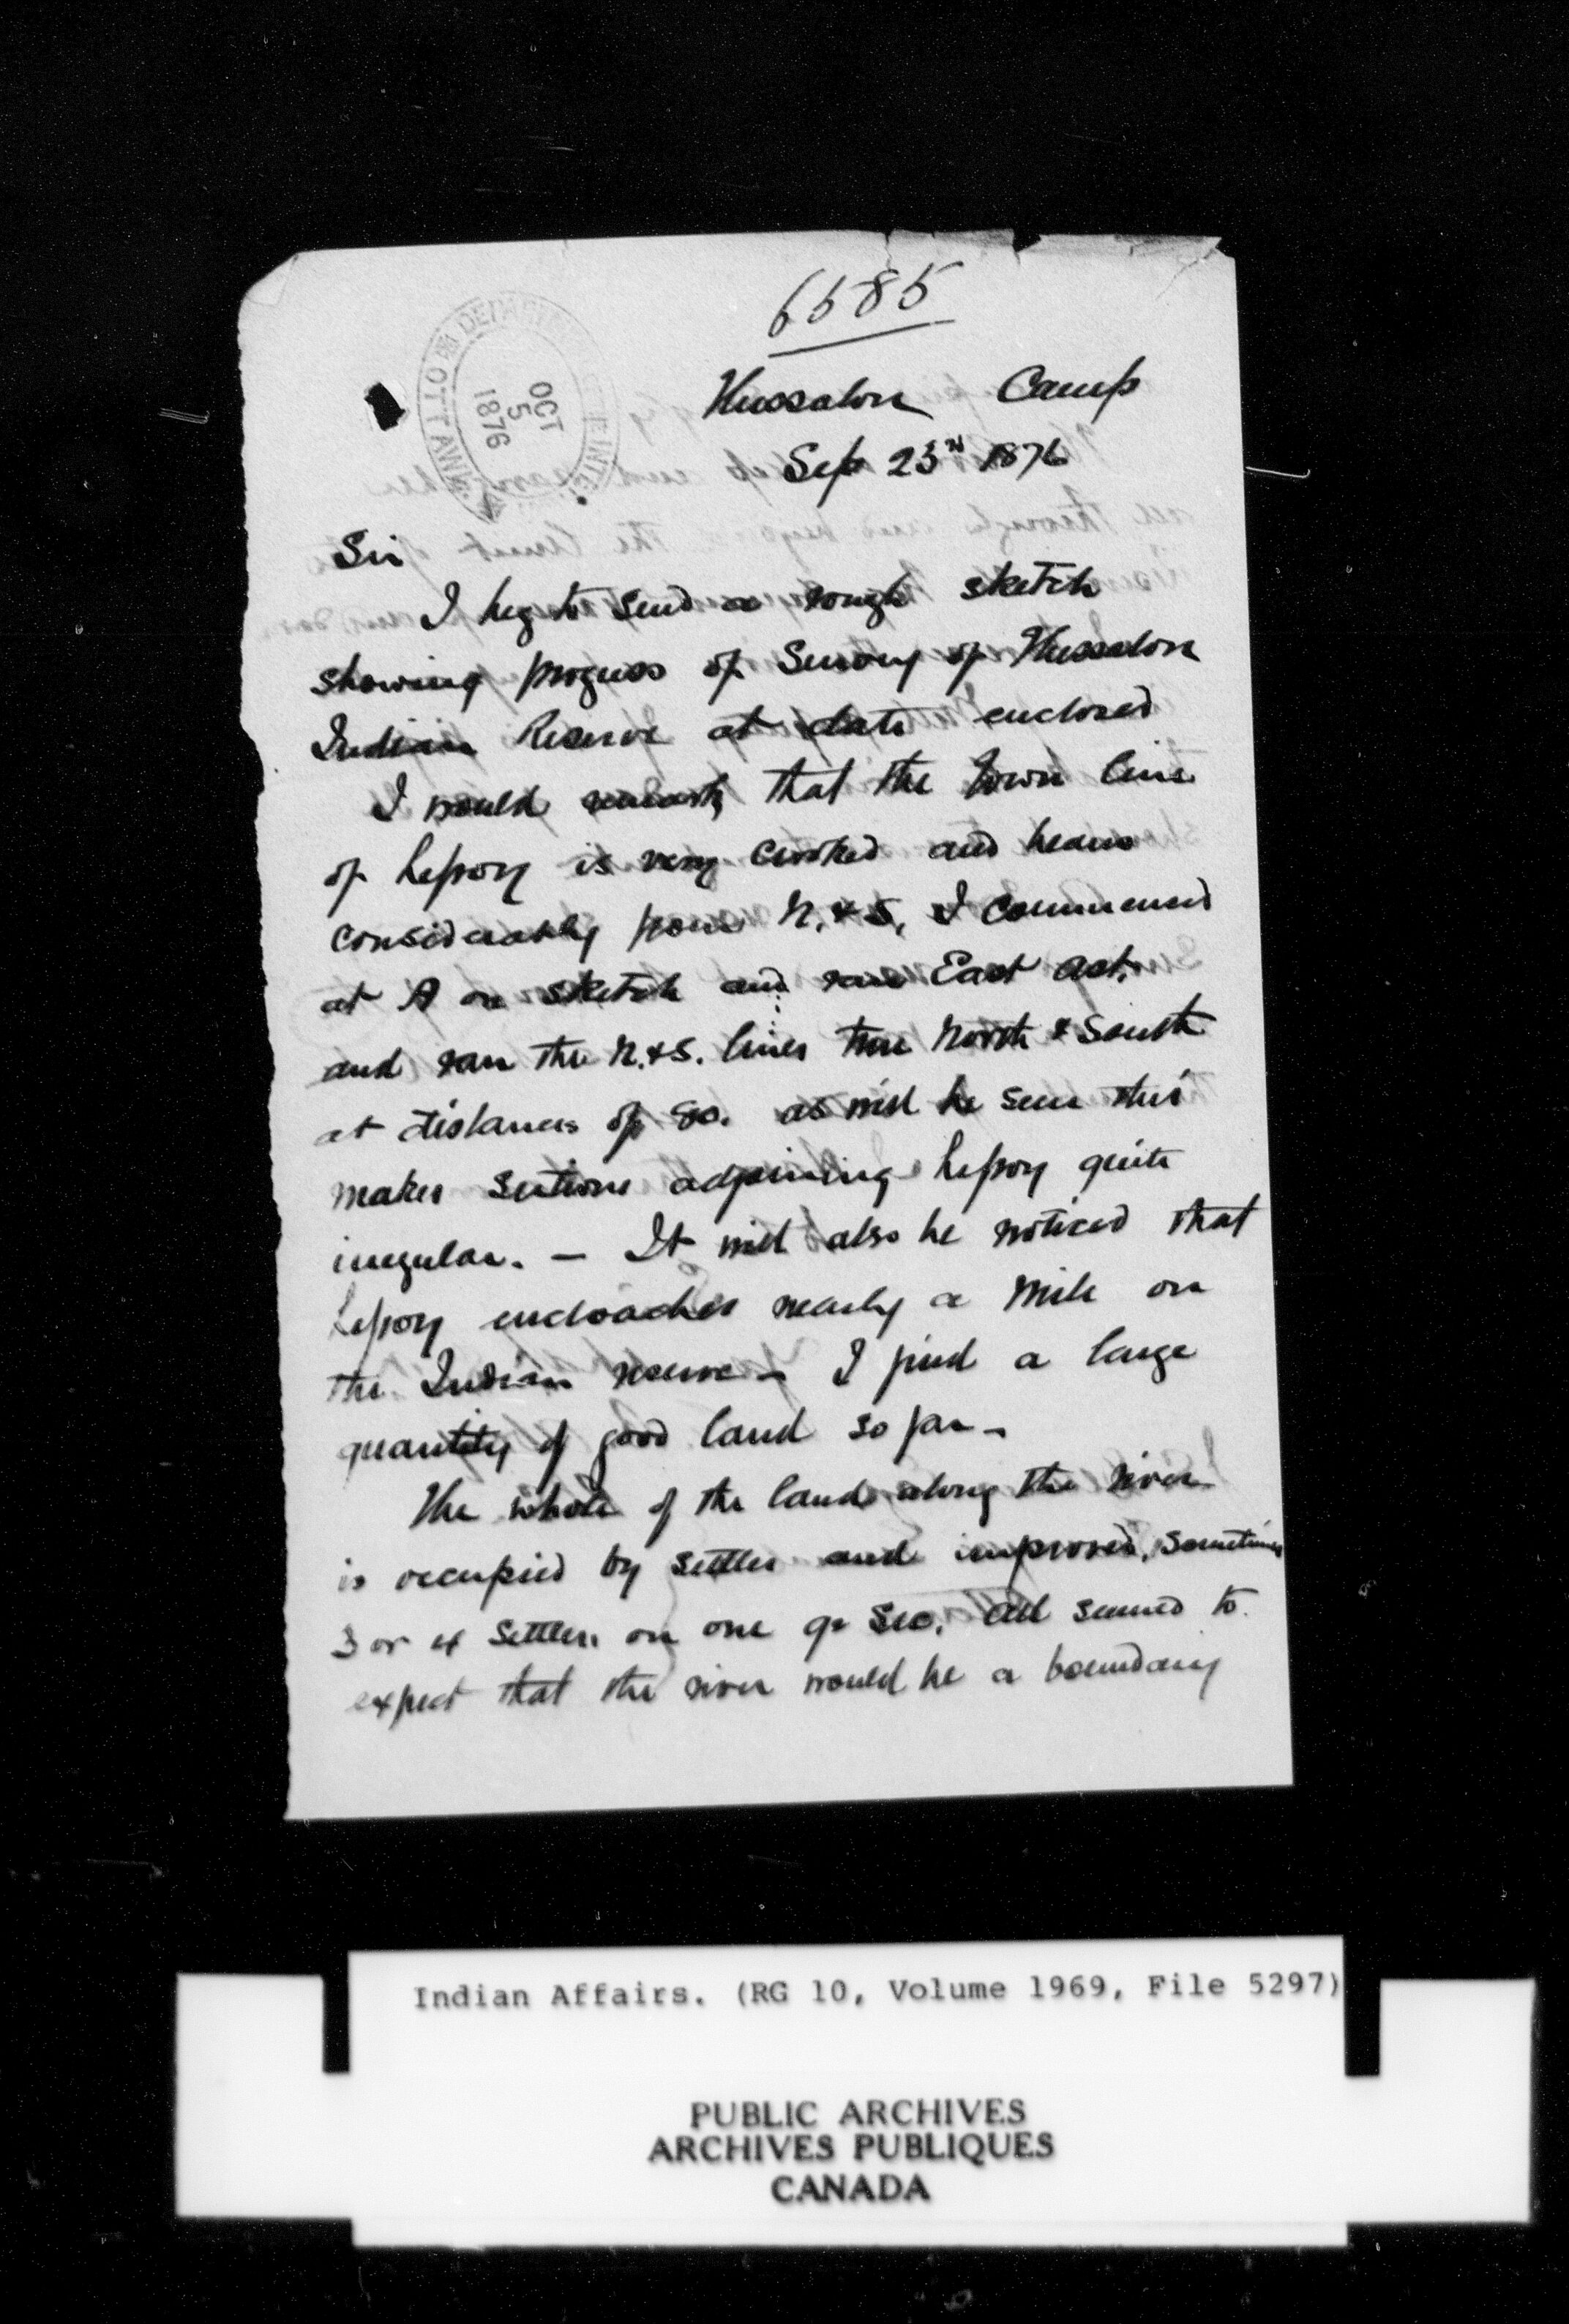 6585
DEPARTMENT OF THE INTERIOR
OTTAWA
OCT
5
1876
Thessalon Camp
Sep 23rd 1876
Sir
I beg to send a rough sketch
showing progress of Survey of Thessalon
Indian Reserve at date enclosed
I would remark that the town line
of Lefroy is very crooked and bears
considerably from N. & S. I commenced
at A on sketch and ran East ast.
and ran the N. & S. lines true North & South
at distances of 80. as will be seen this
makes sections adjoining Lefroy quite
irregular. — It will also be noticed that
Lefroy encloaches nearly a mile on
the Indian reserve — I find a large
quantity of good land so far —
The whole of the land along the river
is occupied by settlers and improved, sometimes
3 or 4 Settlers on one qr Sec. All seemed to
expect that the river would be a boundary
Indian Affairs. (RG 10, Volume 1969, File 5297)
PUBLIC ARCHIVES
ARCHIVES PUBLIQUES
CANADA